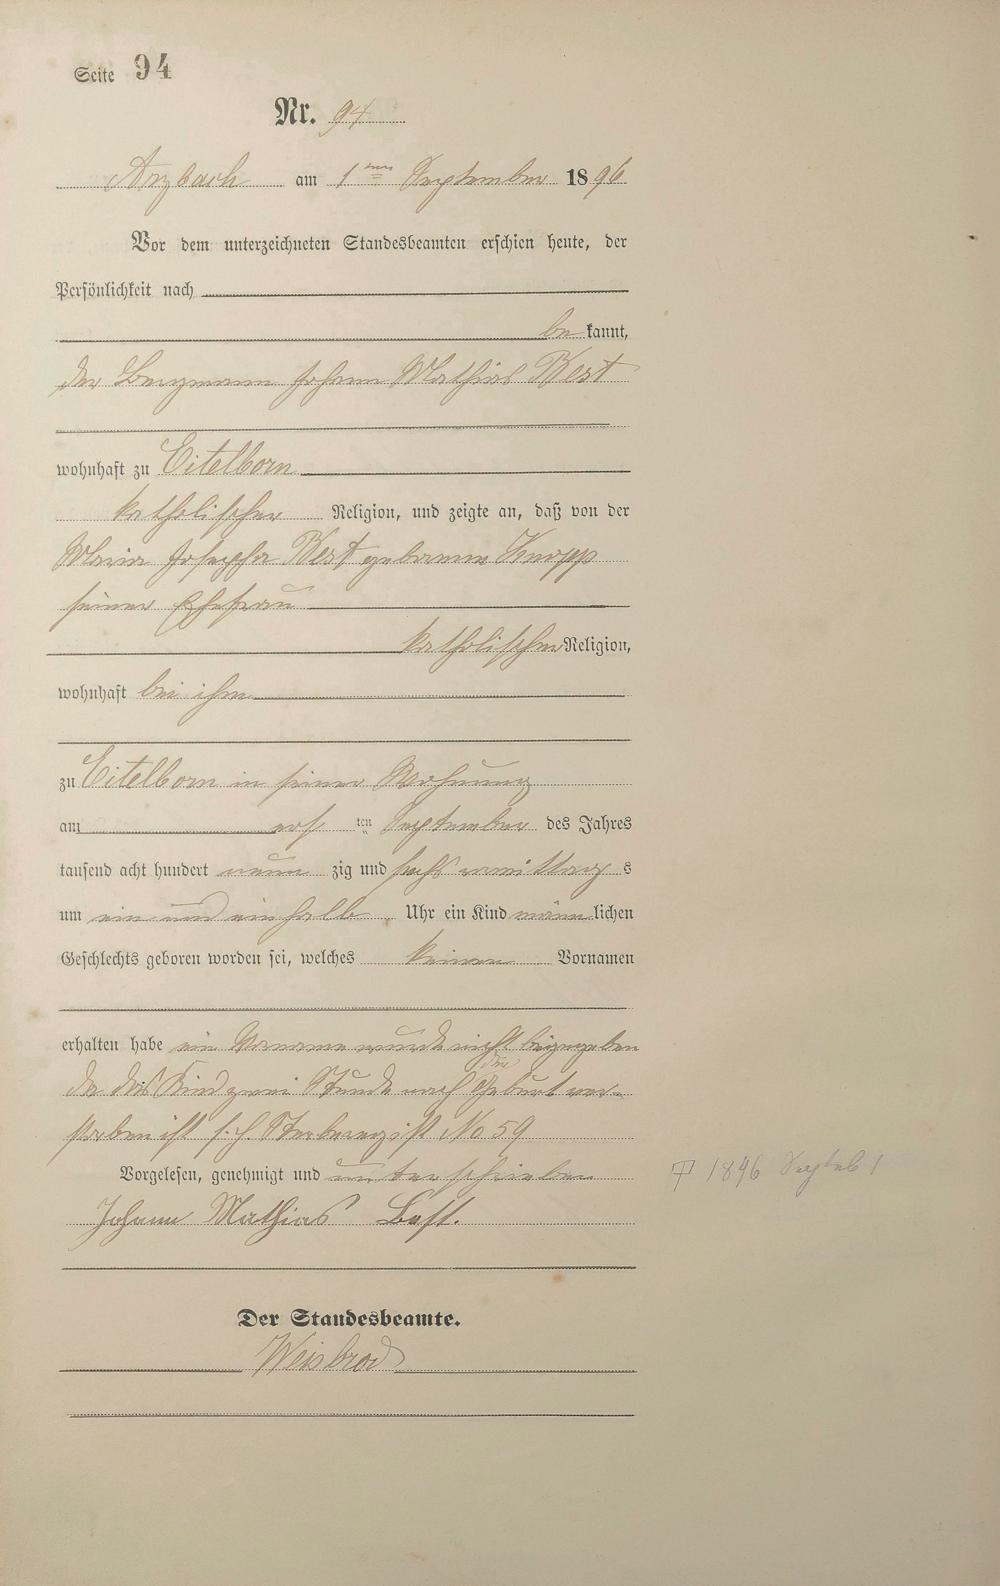 Seite 94
Nr. 94
Arzbach am 1ten September 1896
Vor dem unterzeichneten Standesbeamten erschien heute, der
Persönlichkeit nach
be kannt,
der Bergmann Johann Mathias Best
wohnhaft zu Eitelborn
katholischer Religion, und zeigte an, daß von der
Maria Josepha Best geborenen Knopp
seiner Ehefrau
katholischer Religion,
wohnhaft bei ihm
zu Eitelborn in seiner Wohnung
am ersten September des Jahres
tausend acht hundert neun zig und sechs vormittag s
um ein und ein halb Uhr ein Kind männ lichen
Geschlechts geboren worden sei, welches keinen Vornamen
erhalten habe ein Vorname wurde nicht beigegeben
da das Kind zwei Stunde nach der Geburt ver-
storben ist s. h. No 59
Vorgelesen, genehmigt und unterschrieben
Johann Mathias Best.
Der Standesbeamte.
Weisbrod
1896 Septeb 1